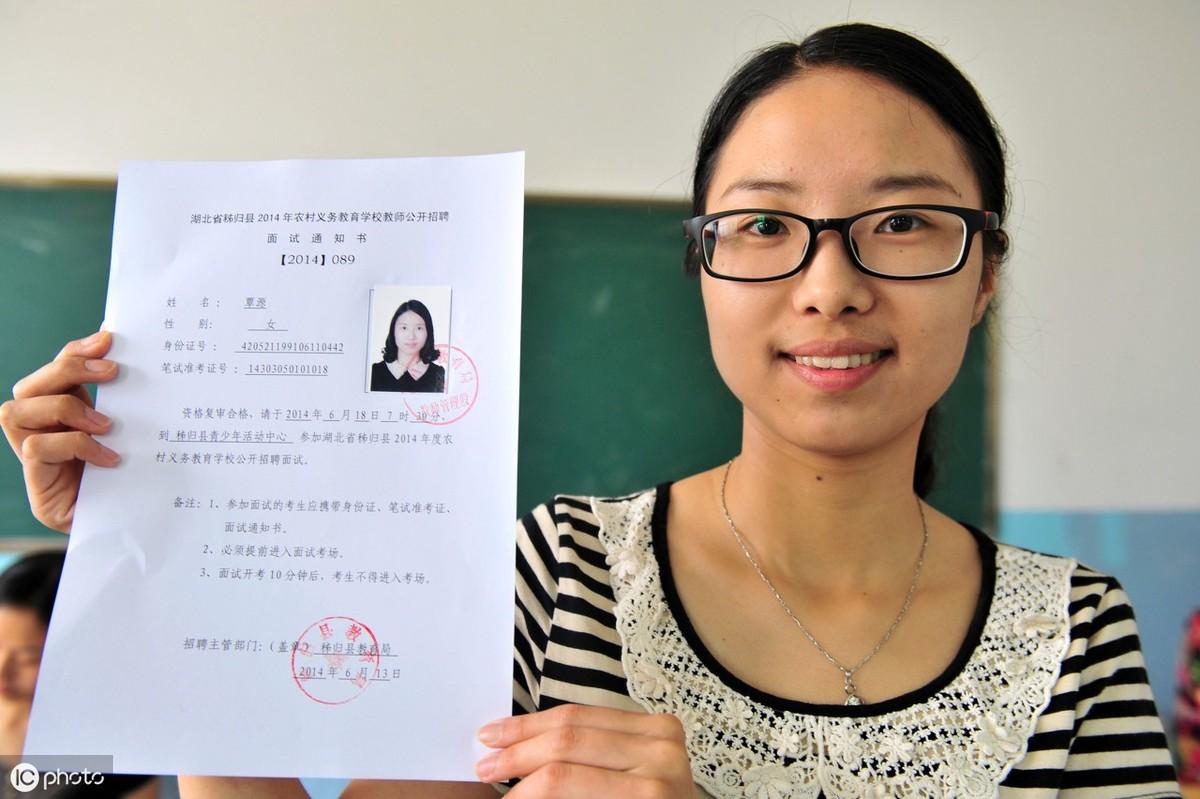 湖北省秭归县2014年农村义务教育学校教师公开招聘
面试通知书
【2014】089
姓 名： 覃源
性 别： 女
身份证号： 420521199106110442
笔试准考证号： 14303050101018
资格复审合格，请于2014年6月18日7时30分、
到秭归县青少年活动中心 参加湖北省秭归县2014年度农
村义务教育学校公开招聘面试。
备注：1、参加面试的考生应携带身份证、笔试准考证、
面试通知书。
2、必须提前进入面试考场。
3、面试开考10分钟后，考生不得进入考场。
招聘主管部门：（盖章） 秭归县教育局
2014年6月13日
IC photo